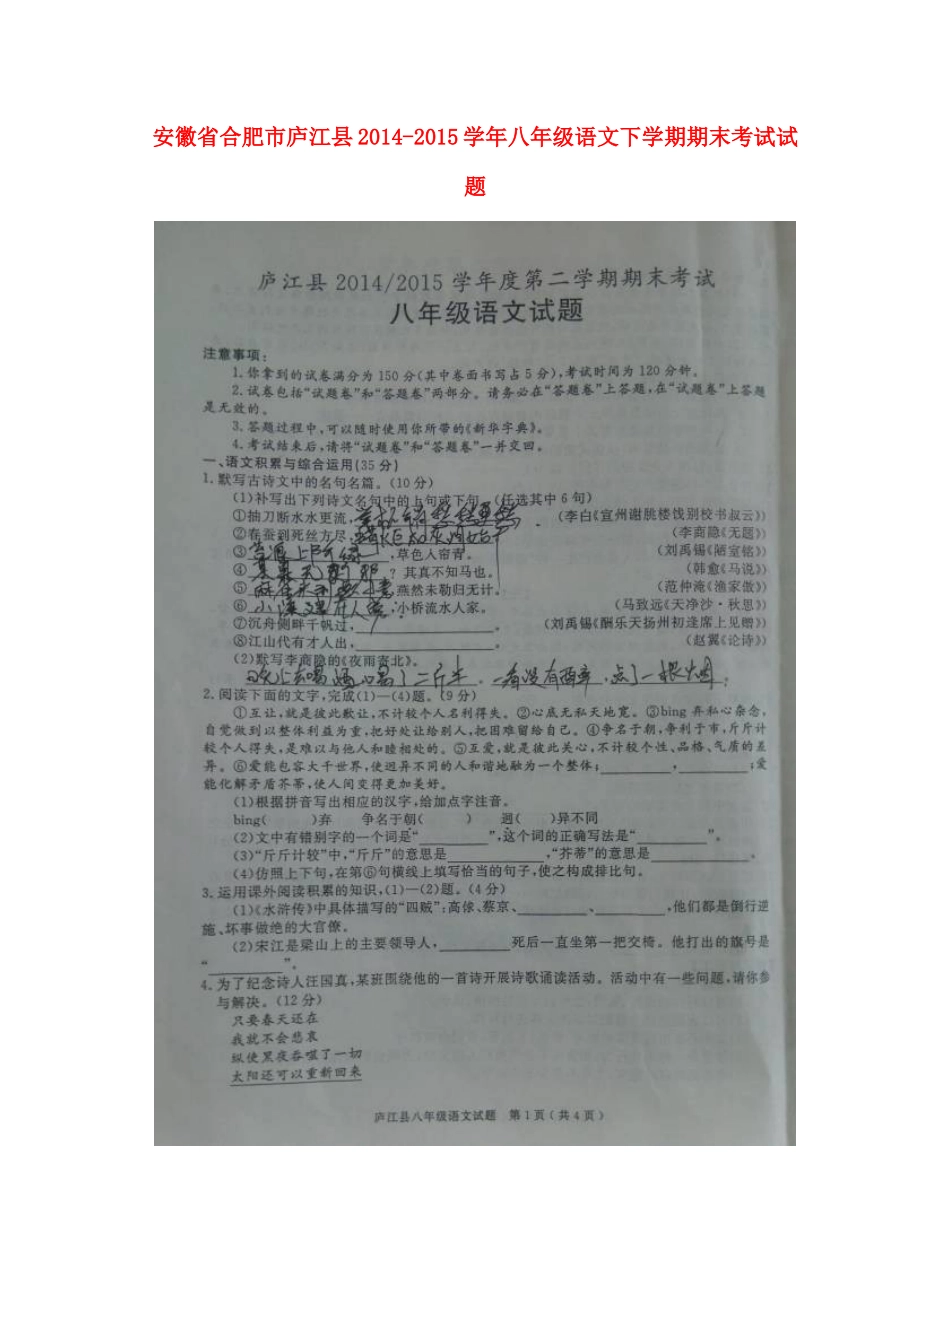 安徽省合肥市庐江县2014-2015学年八年级语文下学期期末考试试
题
庐江县2014/2015学年度第二学期期末考试
八年级语文试题
注意事项：
1.你拿到的试卷满分为150分(其中卷面书写占5分),考试时间为120分钟。
2.试卷包括“试题卷”和“答题卷”两部分。请务必在“答题卷”上答题,在“试题卷”上答题
是无效的。
3.答题过程中,可以随时使用你所带的《新华字典》。
4.考试结束后,请将“试题卷”和“答题卷”一并交回。
一、语文积累与综合运用(35分)
1.默写古诗文中的名句名篇。(10分)
(1)补写出下列诗文名句中的上句或下句。(任选其中6句)
①抽刀断水水更流, (李白《宣州谢朓楼饯别校书叔云》)
②春蚕到死丝方尽, (李商隐《无题》)
③苔痕上阶绿,草色人帘青。 (刘禹锡《陋室铭》)
④其真无马邪？其真不知马也。 (韩愈《马说》)
⑤ ,燕然未勒归无计。 (范仲淹《渔家傲》)
⑥ ,小桥流水人家。 (马致远《天净沙·秋思》)
⑦沉舟侧畔千帆过,____________。 (刘禹锡《酬乐天扬州初逢席上见赠》)
⑧江山代有才人出,____________。 (赵翼《论诗》)
(2)默写李商隐的《夜雨寄北》。
晚上去喝酒,喝了二斤半,一看没有两辛,点了一根大烟;
2.阅读下面的文字,完成(1)—(4)题。(9分)
①互让,就是彼此歉让,不计较个人名利得失。②心底无私天地宽。③bing弃私心杂念,
自觉做到以整体利益为重,把好处让给别人,把困难留给自己。④争名于朝,争利于市,斤斤计
较个人得失,是难以与他人和睦相处的。⑤互爱,就是彼此关心,不计较个性、品格、气质的差
异。⑥爱能包容大千世界,使迥异不同的人和谐地融为一个整体;________,________;爱
能化解矛盾芥蒂,使人间变得更加美好。
(1)根据拼音写出相应的汉字,给加点字注音。
bing( )弃 争名于朝( ) 迥( )异不同
(2)文中有错别字的一个词是“________”,这个词的正确写法是“________”。
(3)“斤斤计较”中,“斤斤”的意思是________,“芥蒂”的意思是________。
(4)仿照上下句,在第⑥句横线上填写恰当的句子,使之构成排比句。
3.运用课外阅读积累的知识,(1)—(2)题。(4分)
(1)《水浒传》中具体描写的“四贼”:高俅、蔡京、________、________,他们都是倒行逆
施、坏事做绝的大官僚。
(2)宋江是梁山上的主要领导人,________死后一直坐第一把交椅。他打出的旗号是
“________”。
4.为了纪念诗人汪国真,某班围绕他的一首诗开展诗歌诵读活动。活动中有一些问题,请你参
与解决。(12分)
只要春天还在
我就不会悲哀
纵使黑夜吞噬了一切
太阳还可以重新回来
庐江县八年级语文试题 第1页(共4页)